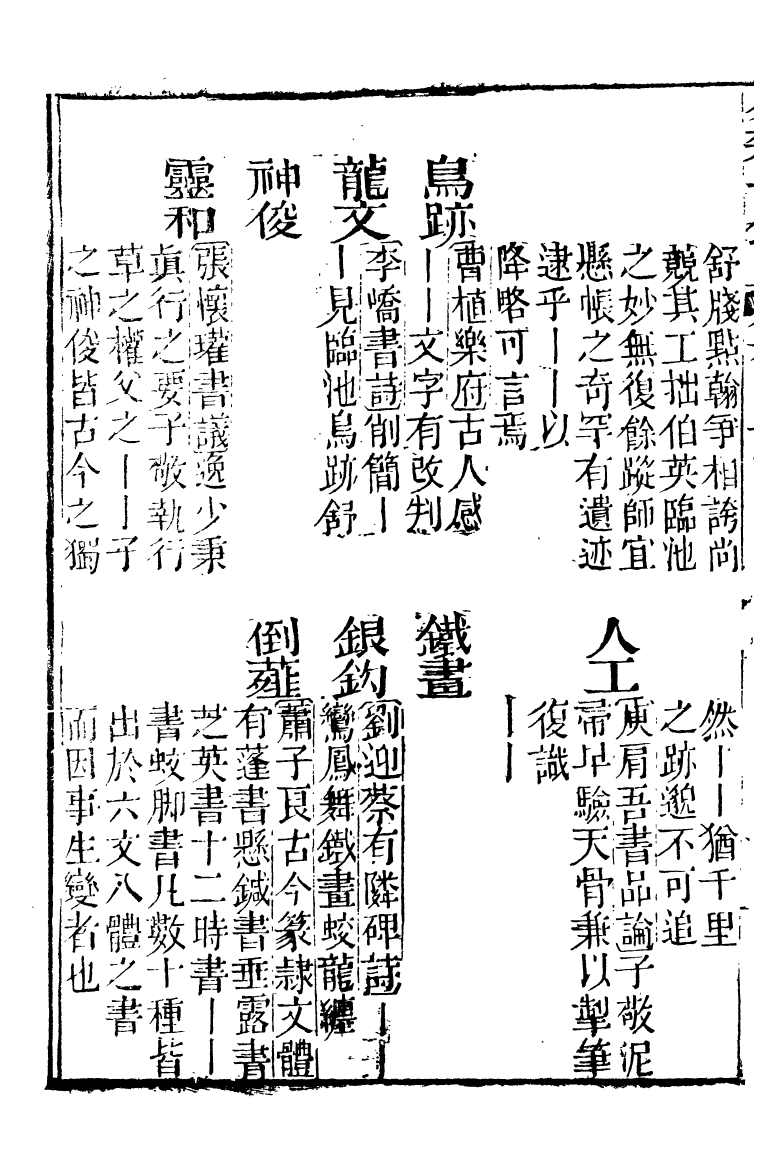 舒牋點翰爭相誇尚
競其工拙伯英臨池
之妙無復餘蹤師宜
懸帳之奇罕有遺迹
逮乎丨丨以
降略可言焉
鳥跡
曹植樂府古人感
丨丨文字有改判
龍文
李嶠書詩削簡丨
丨見臨池鳥跡舒
神俊
靈和
張懷瓘書議逸少秉
眞行之要子敬執行
草之權父之丨丨子
之神俊皆古今之獨
然丨丨猶千里
之跡邈不可追
人工
庾肩吾書品論子敬泥
帚早驗天骨兼以掣筆
復識
丨丨
鐵畫
銀鈎
劉迎蔡有隣碑詩丨丨
鸞鳳舞鐵畫蛟龍纏
倒薤
蕭子良古今篆隸文體
有蓬書懸鍼書垂露書
芝英書十二時書丨丨
書蛟脚書凡數十種皆
出於六文八體之書
而因事生變者也